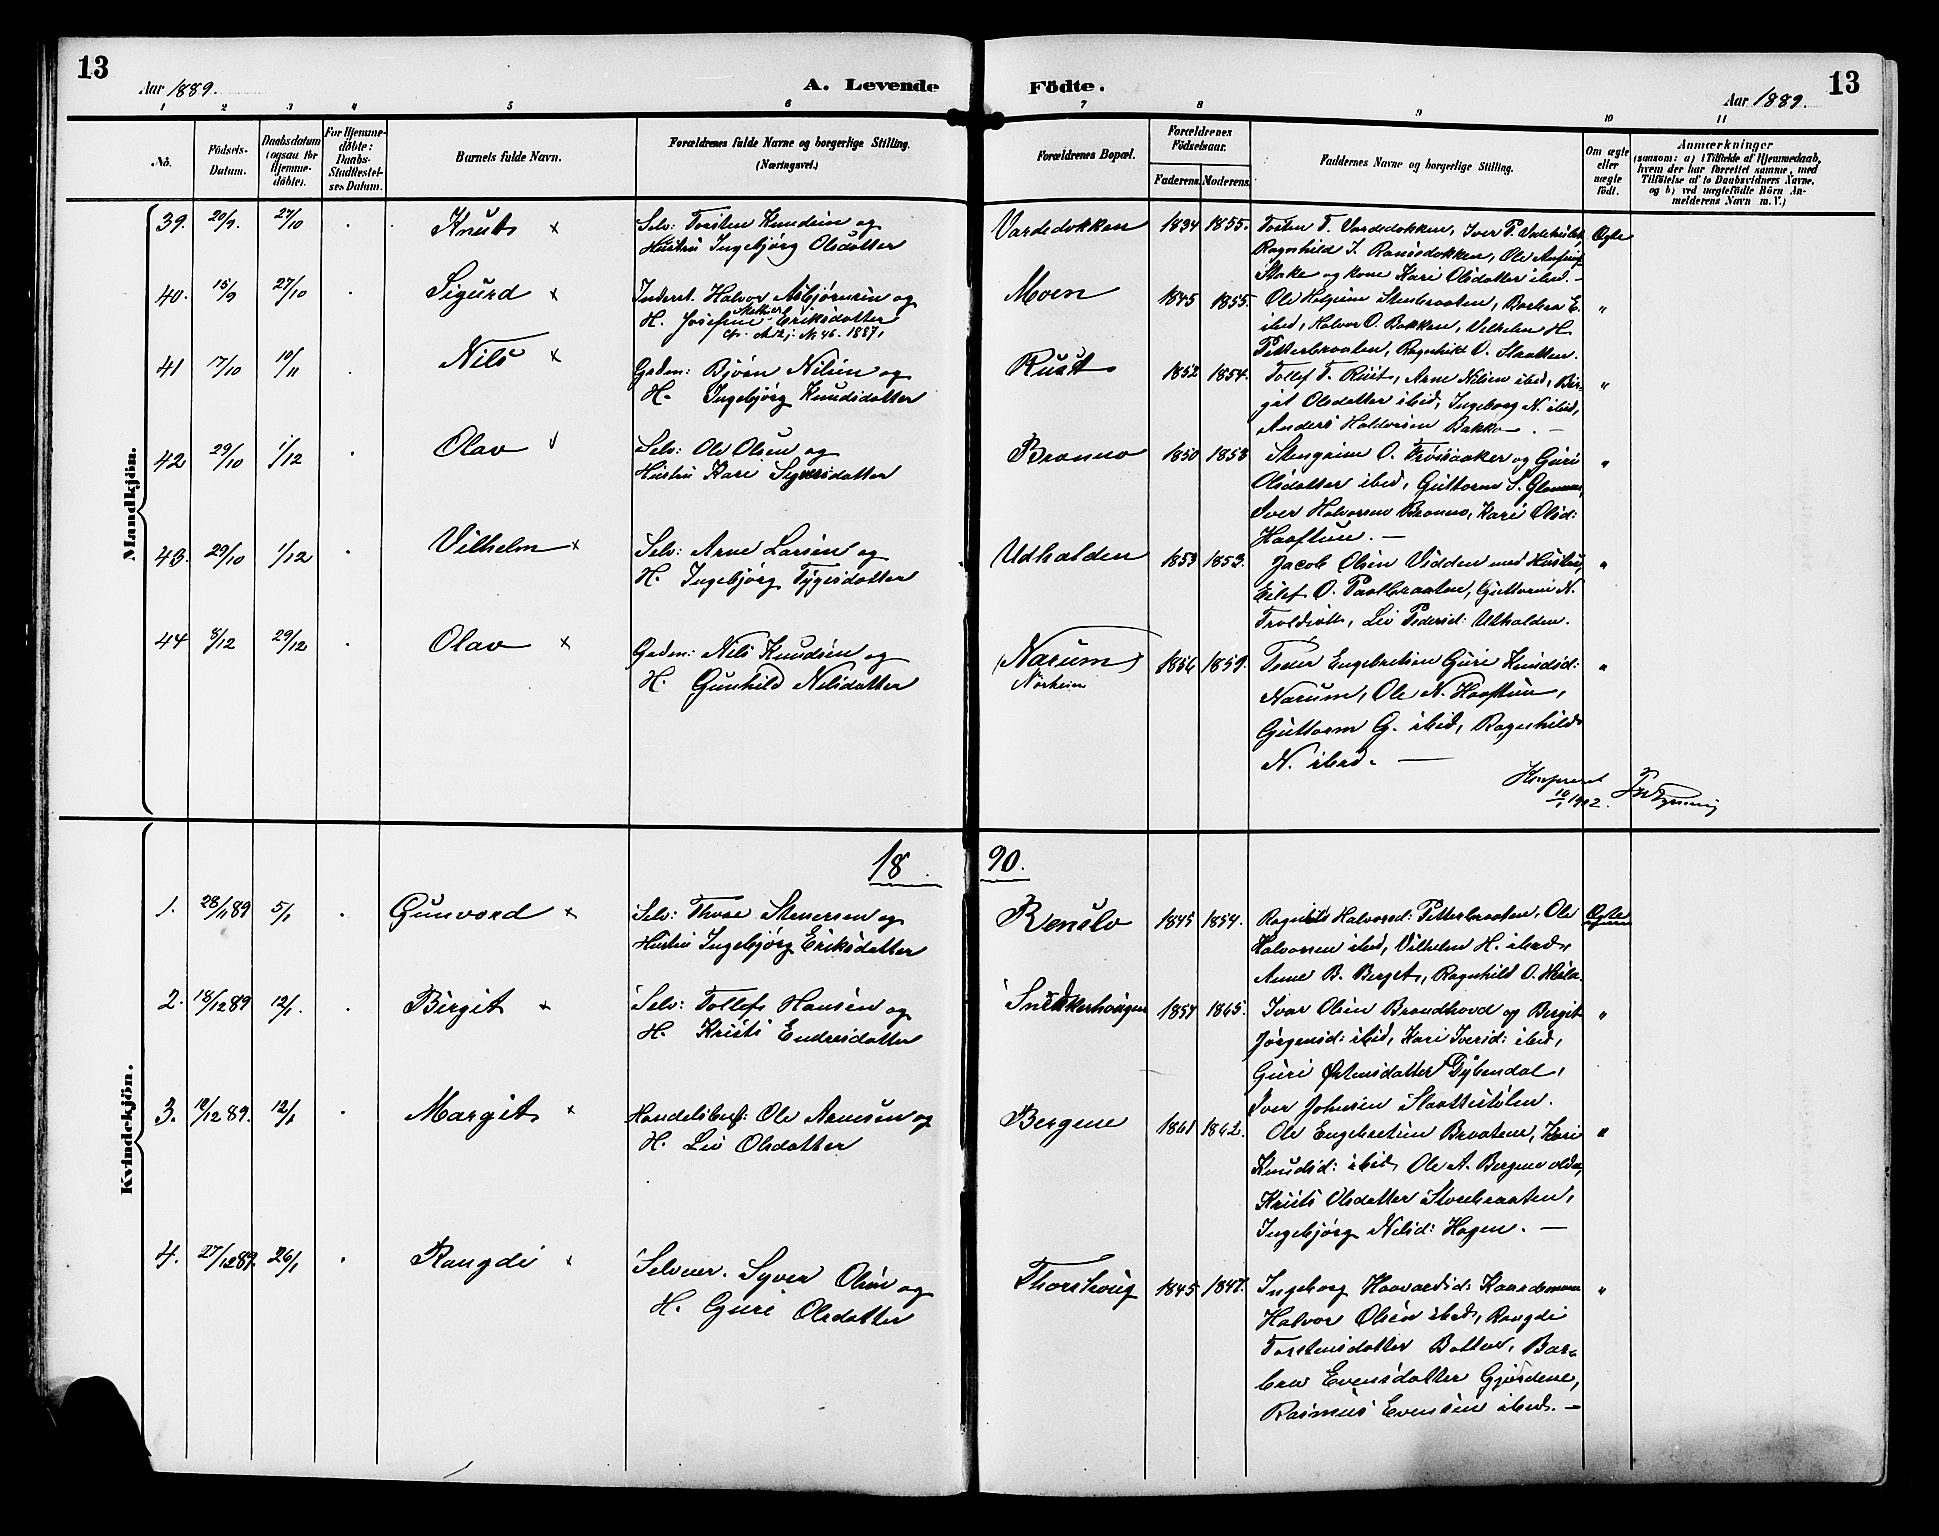 13
Aar 1889.
A. Levende Födte.
Aar 1889.
13
1 2 3 4 5 6 7 8 9 10 11
No.
Födsels-Datum.
Daabsdatum (ogsaa for Hjemme-döbte).
For Hjemme-döbte: Daabs-Stadfæstel-ses Datum.
Barnets fulde Navn.
Forældrenes fulde Navne og borgerlige Stilling. (Næringsvei.)
Forældrenes Bopæl.
Forældrenes Födselsaar.
Faderens. Moderens.
Faddernes Navne og borgerlige Stilling.
Om ægte eller uægte födt.
Anmærkninger
(saasom: a) i Tilfælde af Hjemmedaab, hvem der har forrettet samme, med Tilföielse af to Daabsvidners Navne, og b) ved uægtefödte Börn An-melderens Navn m. V.)
Mandkjön.
39. 20/9. 27/10 Knut x Selv: Torsten Knudsen og
Hustru Ingebjörg Olsdatter
Vardedokken 1834 1855. Tosten T. Vardedokken, Iver P.
Ragnhild I. Ransdokken, Ole
Stake og kone Kari Olsdatter ibid. —
Ægte
40. 15/9 27/10 Sigurd x Inderst. Halvor Asbjörnsen og
H. Josefine Eriksdatter
No 46. 1887.
Moen 1845 1855. Ole Helgesen Stenbraaten, Barbra E.
ibid, Halvor O. Bakken, Vilhelm H.
Petterbraaten, Ragnhild O. Slaatten. "
41 17/10 10/11 Nils x Gadm: Björn Nilsen og
H. Ingebjörg Knudsdatter
Rust 1852 1854. Tollef T. Rust, Arne Nilsen ibid, Bir-
git Olsdatter ibid, Ingeborg N. ibid,
Anders Halvorsen Bakko. — "
42 29/10 1/12 Olav Selv: Ole Olsen og
Hustru Kari Syversdatter
Bronno 1850 1853 Stengrim O. Fröisaaker og Guri
Olsdatter ibid, Guttorm S.
Iver Halvorsen Bronno, Kari Olsd:
Haaftun. — "
43. 29/10 1/12 Vilhelm x Selv: Arne Larsen og
H. Ingebjörg Tygesdatter
Udhalden 1853 1853. Jacob Olsen Vidden med Hustru,
Eilef O. Paalbraaten, Guttorm N.
Liv Pedersd: Udhalden. "
44 8/12 29/12 Olav x Gadm: Nils Knudsen og
H. Gunhild Nilsdatter
(Narum)
Norheim
1856 1859. Peder Engebretsen Guri Knudsd:
Narum, Ole N. Haaftun,
Guttorm G. ibid, Ragnhild
N. ibid. — "
10/1 1902.
1890.
Kvindekjön.
1. 28/11 89 5/1 Gunvord x Selv: Thore Stenersen og
Hustru Ingebjörg Eriksdatter
Renslo 1845 1854. Ragnild Halvorsd: Petterbraaten, Ole
Halvorsen ibid, Vilhelm H. ibid,
Anne B. Berget, Ragnhild O.
Ægte
2. 18/12 89 12/1. Birgit x Selv: Tollef Hansen og
H. Kristi Endresdatter
Snekkerhaugen 1857 1865. Ivar Olsen Brandhovd og Bergit
Jörgensd: ibid, Kari Iversd: ibid,
Guri Östensdatter Dybendal,
Iver Johnsen Slaattestölen. "
3. 12/12 89. 12/1 Margit x Handelsbetj: Ole Arnesen og
H. Liv Olsdatter
Bergene 1861 1862. Ole Engebretsen Braatene, Kari
Knudsd: ibid Ole A. Bergene
Kristi Olsdatter Storebraaten,
Ingebjörg Nilsd: Hagen. — "
4. 27/12 89. 26/1 Rangdi x Selveier. Syver Olsen og
H. Guri Olsdatter
Thorshoug 1845 1847. Ingeborg Haavardsd:
Halvor Olsen ibid, Rangdi
Torstensdatter Botten, Bar-
bra Evensdatter Gjördene,
Rasmus Evensen ibid. — "